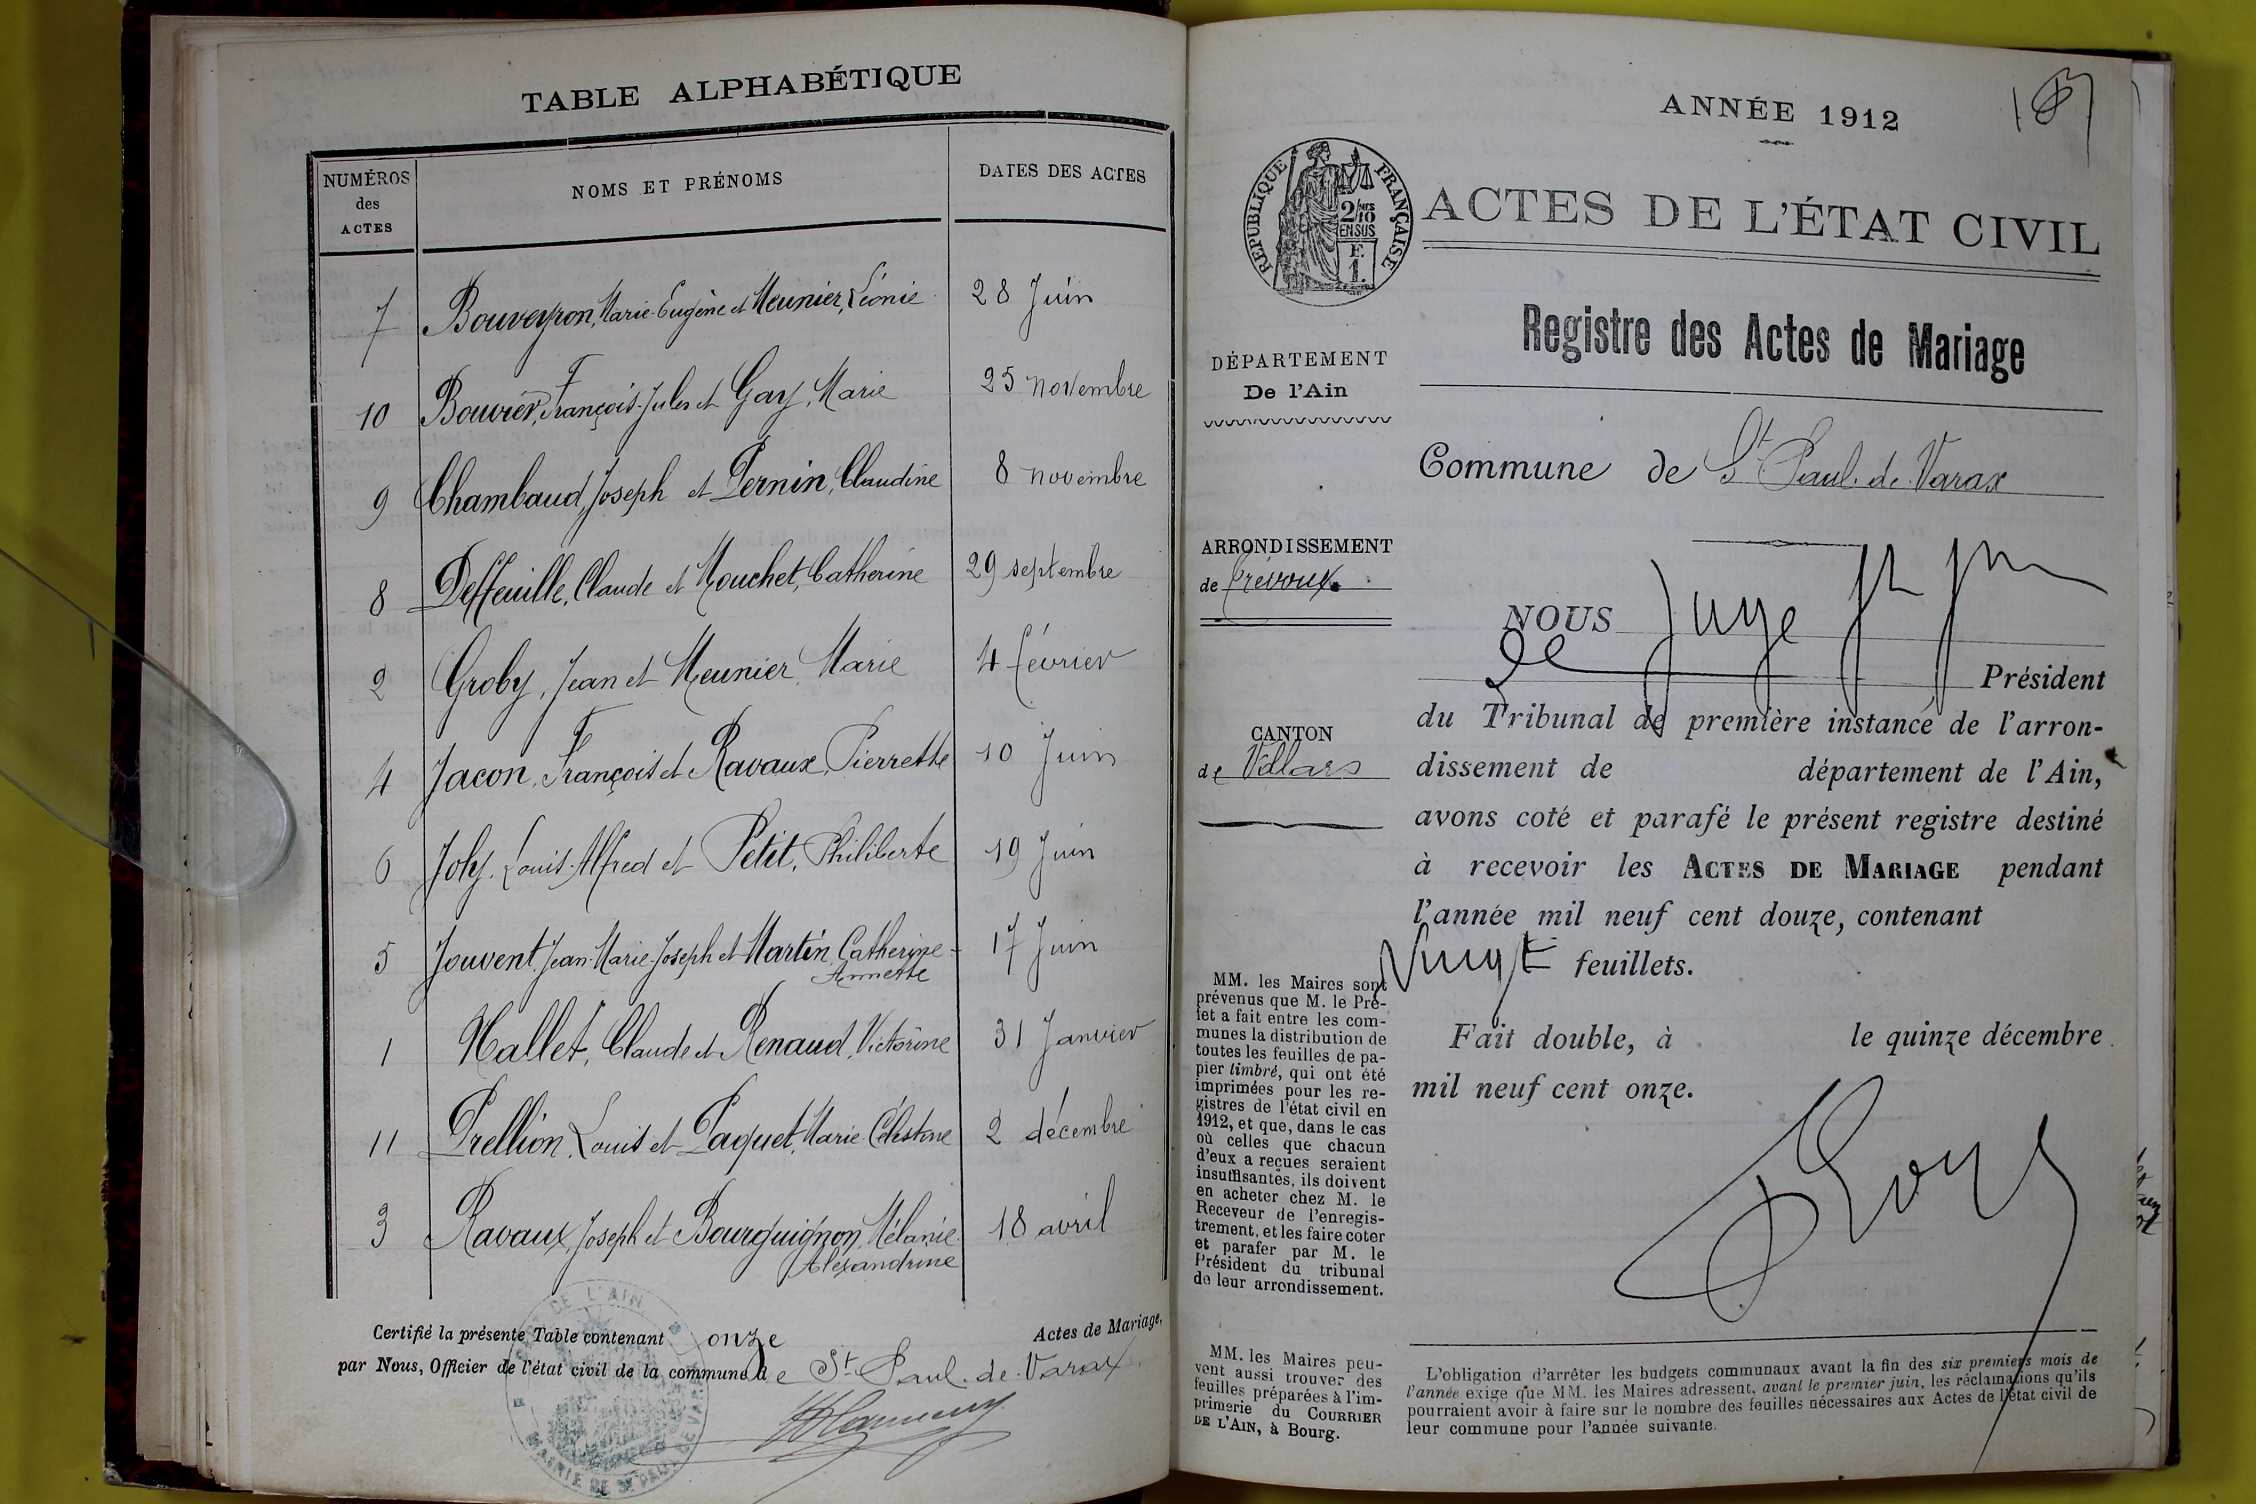 TABLE ALPHABÉTIQUE
NUMÉROS
des
ACTES
NOMS ET PRÉNOMS
DATES DES ACTES
7 Bouveyron, Marie-Eugène et Meunier, Léonie 28 Juin
10 Bouvier, François-Jules et Gay, Marie 25 novembre
9 Chambaud, Joseph et Pernin, Claudine 8 novembre
8 Deffeuille, Claude et Mouchet, Catherine 29 septembre
2 Groby, Jean et Meunier, Marie 4 février
4 Jacon, François et Ravaux, Pierrette 10 Juin
6 Joly, Louis-Alfred et Petit, Philiberte 19 Juin
5 Jouvent, Jean-Marie-Joseph et Martin, Catherine- 17 Juin
Annette
1 Mallet, Claude et Renaud, Victorine 31 Janvier
11 Prellion, Louis et Paquet, Marie-Célestine 2 décembre
3 Ravaux, Joseph et Bourguignon, Mélanie- 18 avril
Alexandrine
Certifié la présente Table contenant onze Actes de Mariage,
par Nous, Officier de l'état civil de la commune de St-Paul-de-Varax
MAIRIE DE St PAUL DE VARAX
DE L'AIN
ANNÉE 1912
RÉPUBLIQUE FRANÇAISE
2/10
EN SUS
F.
1.
ACTES DE L'ÉTAT CIVIL
Registre des Actes de Mariage
DÉPARTEMENT
De l'Ain
Commune de St Paul-de-Varax
ARRONDISSEMENT
de Trévoux
CANTON
de Villars
NOUS Juge
de Président
du Tribunal de première instance de l'arron-
dissement de département de l'Ain,
avons coté et parafé le présent registre destiné
à recevoir les ACTES DE MARIAGE pendant
l'année mil neuf cent douze, contenant
Vingt feuillets.
Fait double, à le quinze décembre
mil neuf cent onze.
MM. les Maires sont
prévenus que M. le Pré-
fet a fait entre les com-
munes la distribution de
toutes les feuilles de pa-
pier timbré, qui ont été
imprimées pour les re-
gistres de l'état civil en
1912, et que, dans le cas
où celles que chacun
d'eux a reçues seraient
insuffisantes, ils doivent
en acheter chez M. le
Receveur de l'enregis-
trement, et les faire coter
et parafer par M. le
Président du tribunal
de leur arrondissement.
MM. les Maires peu-
vent aussi trouver des
feuilles préparées à l'im-
primerie du COURRIER
DE L'AIN, à Bourg.
L'obligation d'arrêter les budgets communaux avant la fin des six premiers mois de
l'année exige que MM. les Maires adressent, avant le premier juin, les réclamations qu'ils
pourraient avoir à faire sur le nombre des feuilles nécessaires aux Actes de l'état civil de
leur commune pour l'année suivante.